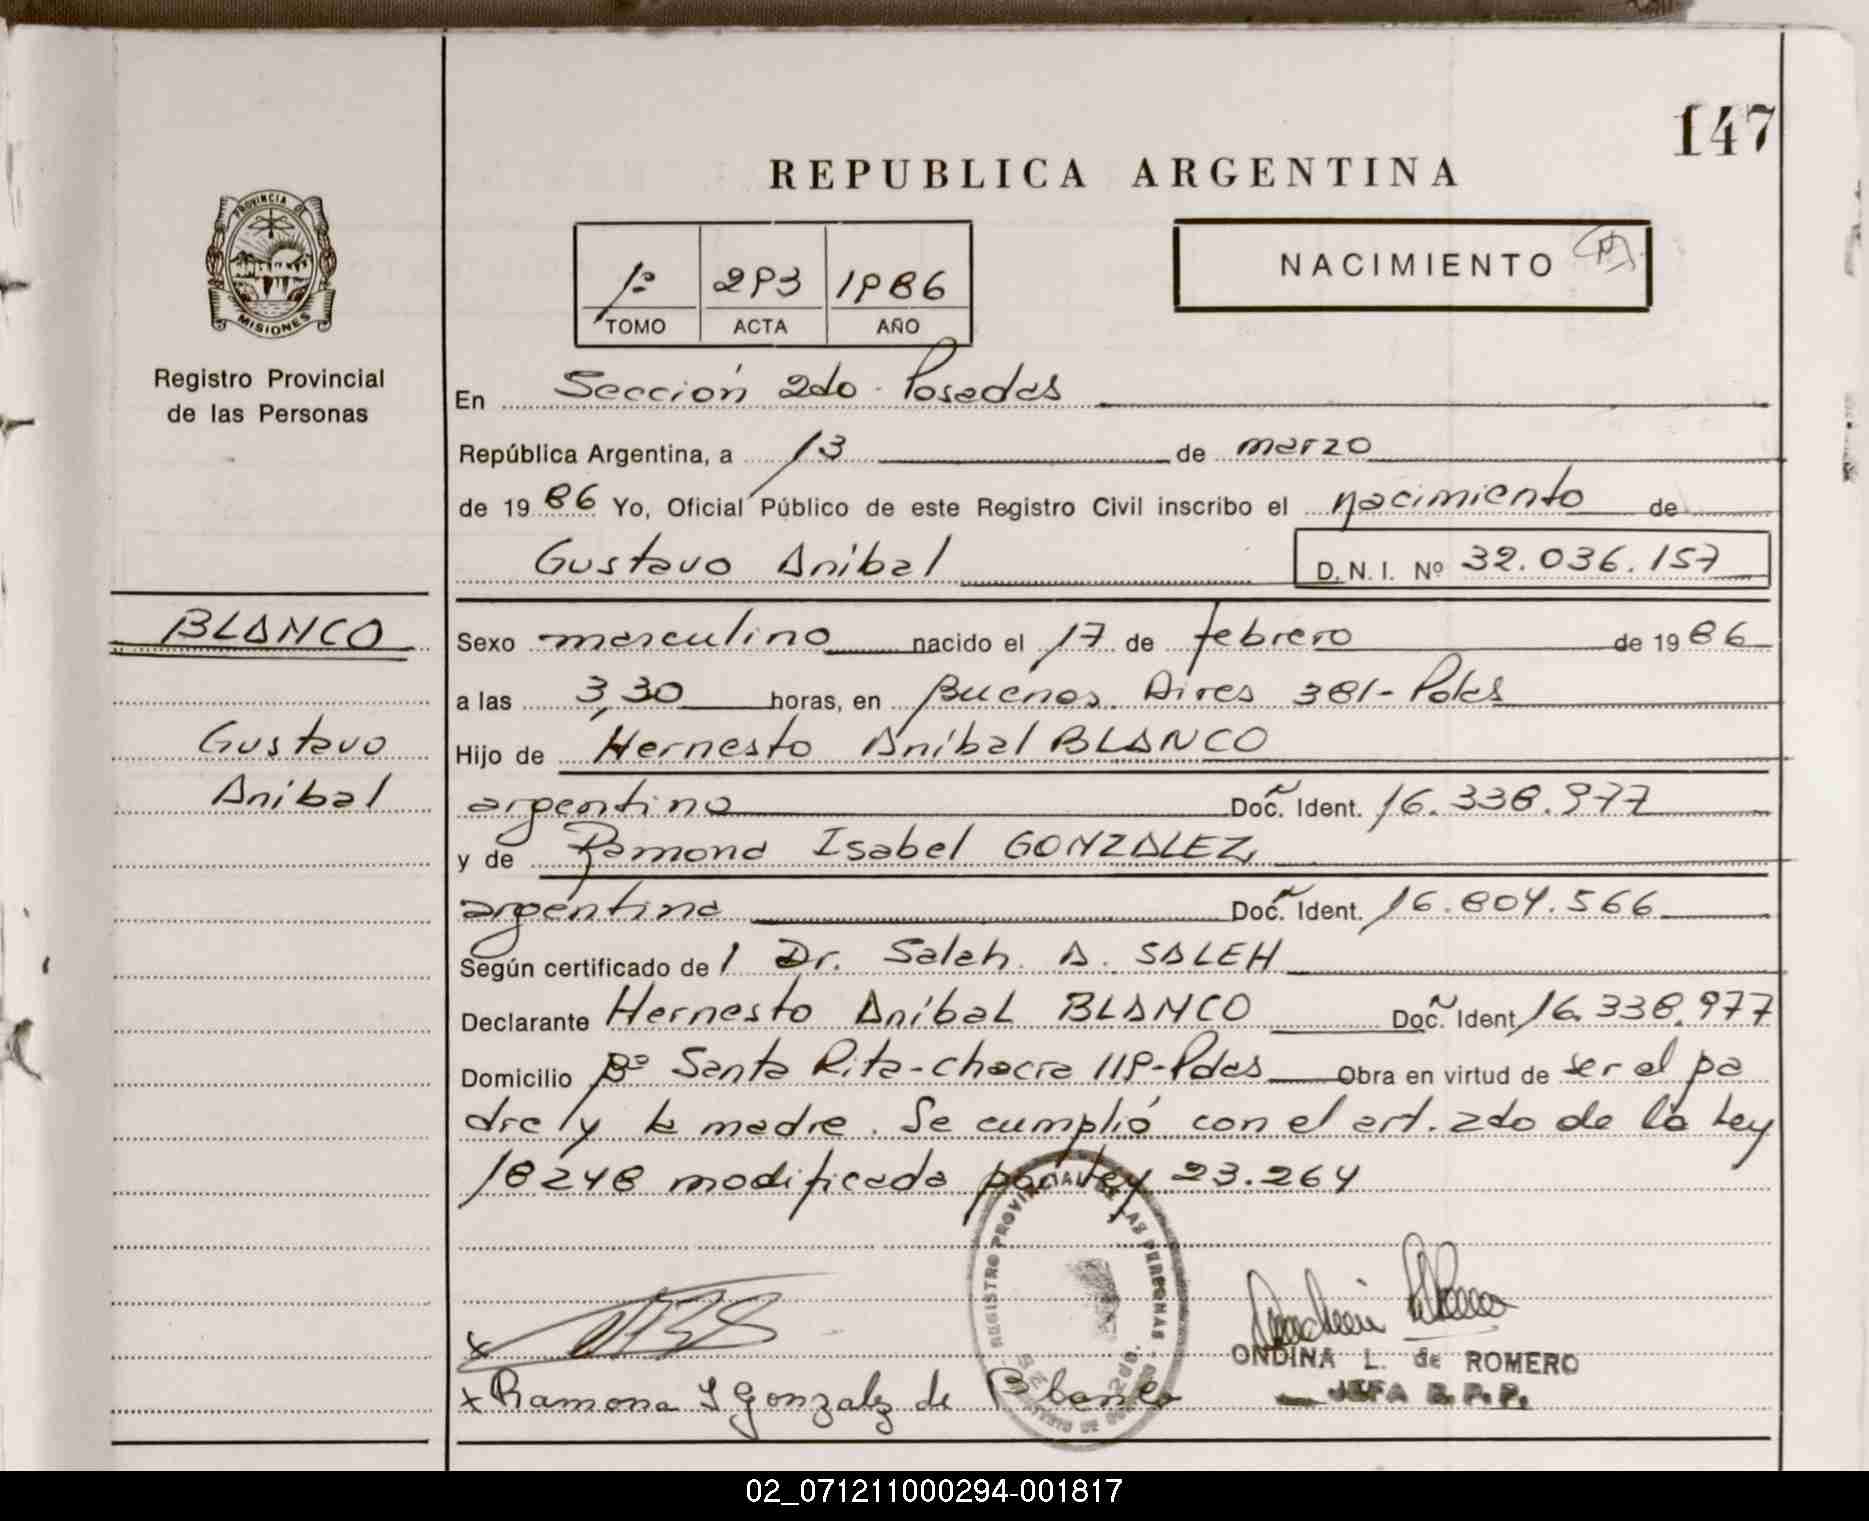 147
REPUBLICA ARGENTINA
PROVINCIA DE
MISIONES
Registro Provincial
de las Personas
1º 293 1986
TOMO ACTA AÑO
NACIMIENTO
En Sección 2do - Posadas
República Argentina, a 13 de marzo
de 19 86 Yo, Oficial Público de este Registro Civil inscribo el nacimiento de
Gustavo Anibal D. N. I. Nº 32.036.157
BLANCO
Gustavo
Anibal
Sexo masculino nacido el 17 de febrero de 19 86
a las 3,30 horas, en Buenos Aires 381 - Pdas
Hijo de Hernesto Aníbal BLANCO
argentino Doc. Ident. 16.338.977
y de Ramona Isabel GONZALEZ
argentina Doc. Ident. 16.804.566
Según certificado de l Dr. Saleh. A. SALEH
Declarante Hernesto Aníbal BLANCO Doc. Ident 16.338.977
Domicilio Bº Santa Rita - chacra 119 - Pdas Obra en virtud de ser el pa
dre / y la madre. Se cumplió con el art. 2do de la Ley
18248 modificada por Ley 23.264
REGISTRO PROVINCIAL DE LAS PERSONAS
x
x Ramona I Gonzalez de Blanco
ONDINA L. de ROMERO
JEFA R.P.P.
02_071211000294-001817